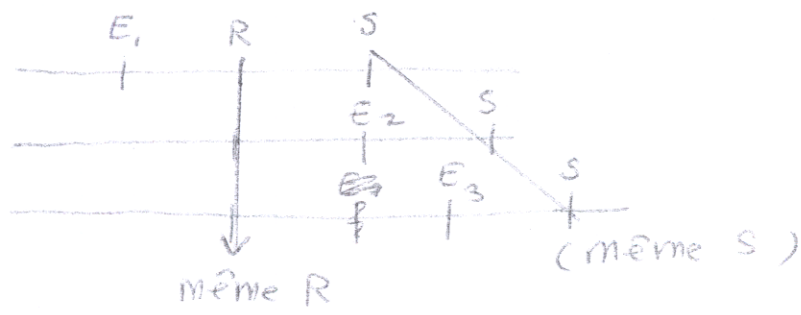 E₁ R S
E₂ S
E₃ S
(même S)
même R